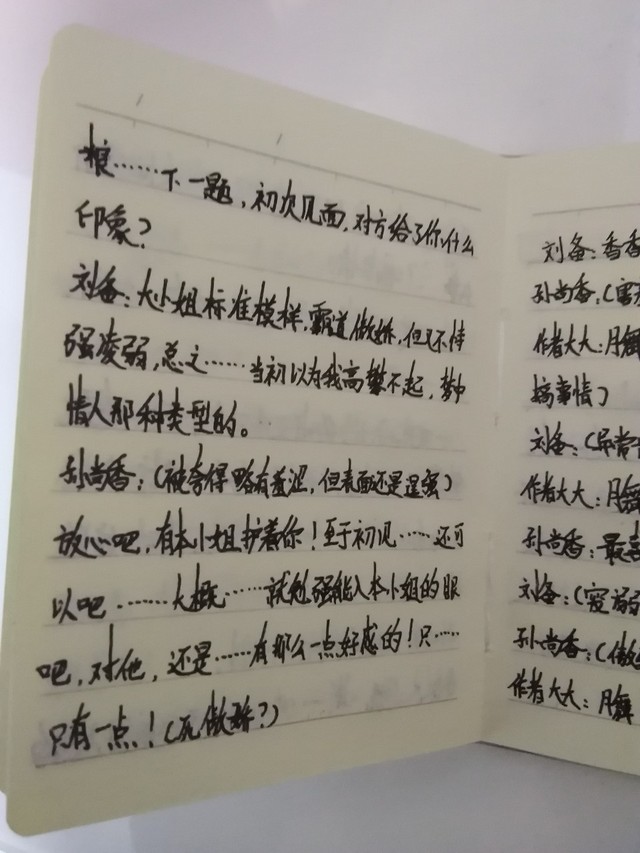 狼……下一题,初次见面,对方给了你什么
印象?
刘备:大小姐标准模样,霸道傲娇,但又不恃
强凌弱,总之……当初以为我高攀不起,梦中
情人那种类型的。
孙尚香:(被夸得略有羞涩,但表面还是逞强)
放心吧,有本小姐护着你!至于初见……还可
以吧……大概……就勉强能入本小姐的眼
吧,对他,还是……有那么一点好感的!只……
只有一点!(死傲娇?)
刘备:香香
孙尚香:(
作者大大:月舞
搞事情)
刘备:(异常
作者大大:月舞
孙尚香:最
刘备:(
孙尚香:(傲
作者大大:月舞